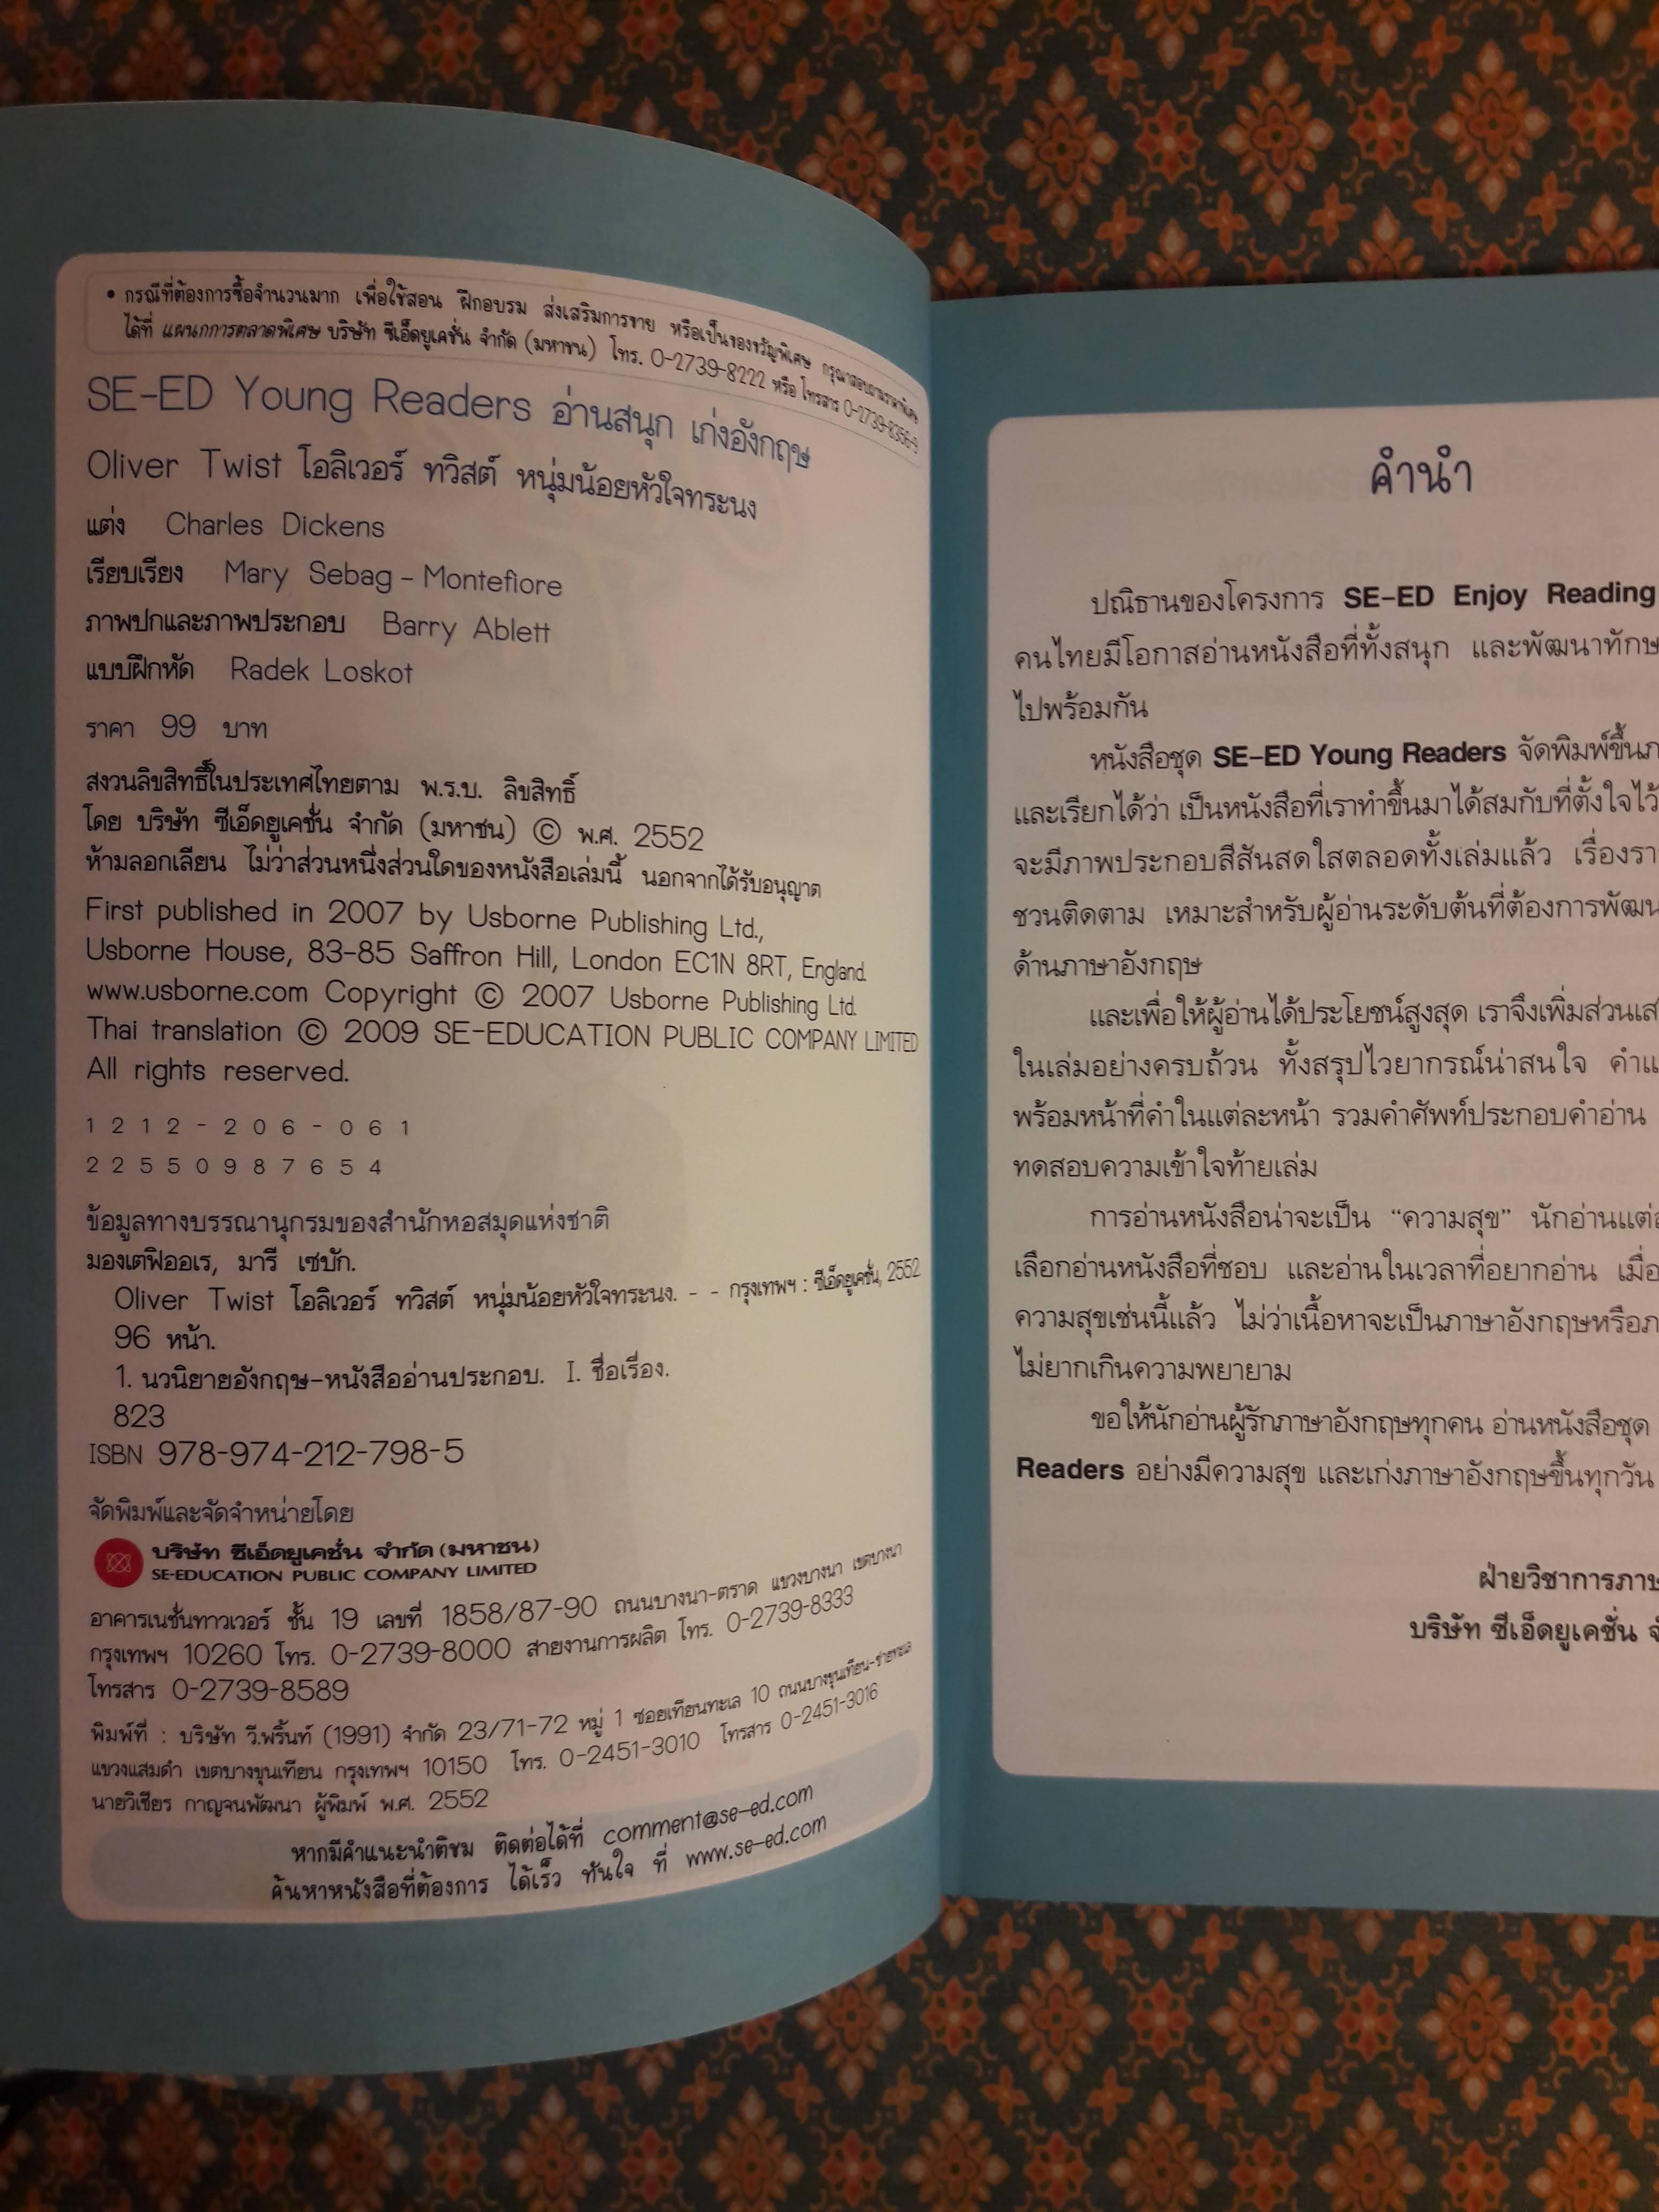 • กรณีที่ต้องการซื้อจำนวนมาก เพื่อใช้สอน ฝึกอบรม ส่งเสริมการขาย หรือเป็นของขวัญพิเศษ กรุณาสอบถามราคาพิเศษ
ได้ที่ แผนกการตลาดพิเศษ บริษัท ซีเอ็ดยูเคชั่น จำกัด (มหาชน) โทร. 0-2739-8222 หรือ โทรสาร 0-2739-8356-9
SE-ED Young Readers อ่านสนุก เก่งอังกฤษ
Oliver Twist โอลิเวอร์ ทวิสต์ หนุ่มน้อยหัวใจทระนง
แต่ง Charles Dickens
เรียบเรียง Mary Sebag - Montefiore
ภาพปกและภาพประกอบ Barry Ablett
แบบฝึกหัด Radek Loskot
ราคา 99 บาท
สงวนลิขสิทธิ์ในประเทศไทยตาม พ.ร.บ. ลิขสิทธิ์
โดย บริษัท ซีเอ็ดยูเคชั่น จำกัด (มหาชน) © พ.ศ. 2552
ห้ามลอกเลียน ไม่ว่าส่วนหนึ่งส่วนใดของหนังสือเล่มนี้ นอกจากได้รับอนุญาต
First published in 2007 by Usborne Publishing Ltd.,
Usborne House, 83-85 Saffron Hill, London EC1N 8RT, England.
www.usborne.com Copyright © 2007 Usborne Publishing Ltd.
Thai translation © 2009 SE-EDUCATION PUBLIC COMPANY LIMITED
All rights reserved.
1 2 1 2 - 2 0 6 - 0 6 1
2 2 5 5 0 9 8 7 6 5 4
ข้อมูลทางบรรณานุกรมของสำนักหอสมุดแห่งชาติ
มองเตฟิออเร, มารี เซบัก.
Oliver Twist โอลิเวอร์ ทวิสต์ หนุ่มน้อยหัวใจทระนง. - - กรุงเทพฯ : ซีเอ็ดยูเคชั่น, 2552
96 หน้า.
1. นวนิยายอังกฤษ-หนังสืออ่านประกอบ. I. ชื่อเรื่อง.
823
ISBN 978-974-212-798-5
จัดพิมพ์และจัดจำหน่ายโดย
บริษัท ซีเอ็ดยูเคชั่น จำกัด (มหาชน)
SE-EDUCATION PUBLIC COMPANY LIMITED
อาคารเนชั่นทาวเวอร์ ชั้น 19 เลขที่ 1858/87-90 ถนนบางนา-ตราด แขวงบางนา เขตบางนา
กรุงเทพฯ 10260 โทร. 0-2739-8000 สายงานการผลิต โทร. 0-2739-8333
โทรสาร 0-2739-8589
พิมพ์ที่ : บริษัท วี.พริ้นท์ (1991) จำกัด 23/71-72 หมู่ 1 ซอยเทียนทะเล 10 ถนนบางขุนเทียน-ชายทะเล
แขวงแสมดำ เขตบางขุนเทียน กรุงเทพฯ 10150 โทร. 0-2451-3010 โทรสาร 0-2451-3016
นายวิเชียร กาญจนพัฒนา ผู้พิมพ์ พ.ศ. 2552
หากมีคำแนะนำติชม ติดต่อได้ที่ comment@se-ed.com
ค้นหาหนังสือที่ต้องการ ได้เร็ว ทันใจ ที่ www.se-ed.com
คำนำ
ปณิธานของโครงการ SE-ED Enjoy Reading
คนไทยมีโอกาสอ่านหนังสือที่ทั้งสนุก และพัฒนาทักษ
ไปพร้อมกัน
หนังสือชุด SE-ED Young Readers จัดพิมพ์ขึ้นภ
และเรียกได้ว่า เป็นหนังสือที่เราทำขึ้นมาได้สมกับที่ตั้งใจไว้
จะมีภาพประกอบสีสันสดใสตลอดทั้งเล่มแล้ว เรื่องรา
ชวนติดตาม เหมาะสำหรับผู้อ่านระดับต้นที่ต้องการพัฒน
ด้านภาษาอังกฤษ
และเพื่อให้ผู้อ่านได้ประโยชน์สูงสุด เราจึงเพิ่มส่วนเส
ในเล่มอย่างครบถ้วน ทั้งสรุปไวยากรณ์น่าสนใจ คำแ
พร้อมหน้าที่คำในแต่ละหน้า รวมคำศัพท์ประกอบคำอ่าน
ทดสอบความเข้าใจท้ายเล่ม
การอ่านหนังสือน่าจะเป็น “ความสุข” นักอ่านแต่ล
เลือกอ่านหนังสือที่ชอบ และอ่านในเวลาที่อยากอ่าน เมื่อ
ความสุขเช่นนี้แล้ว ไม่ว่าเนื้อหาจะเป็นภาษาอังกฤษหรือภ
ไม่ยากเกินความพยายาม
ขอให้นักอ่านผู้รักภาษาอังกฤษทุกคน อ่านหนังสือชุด
Readers อย่างมีความสุข และเก่งภาษาอังกฤษขึ้นทุกวัน
ฝ่ายวิชาการภาษ
บริษัท ซีเอ็ดยูเคชั่น จ